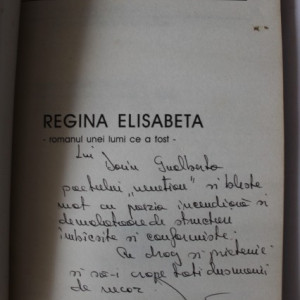 REGINA ELISABETA
- romanul unei lumi ce a fost -
Lui Dorin Gualberto
poetului
mat cu poezia incendiară și
demolatoare de structuri
îmbâcsite și conformiste.
Cu drag și prietenie
și să-i crape toți dușmanii
de necaz.